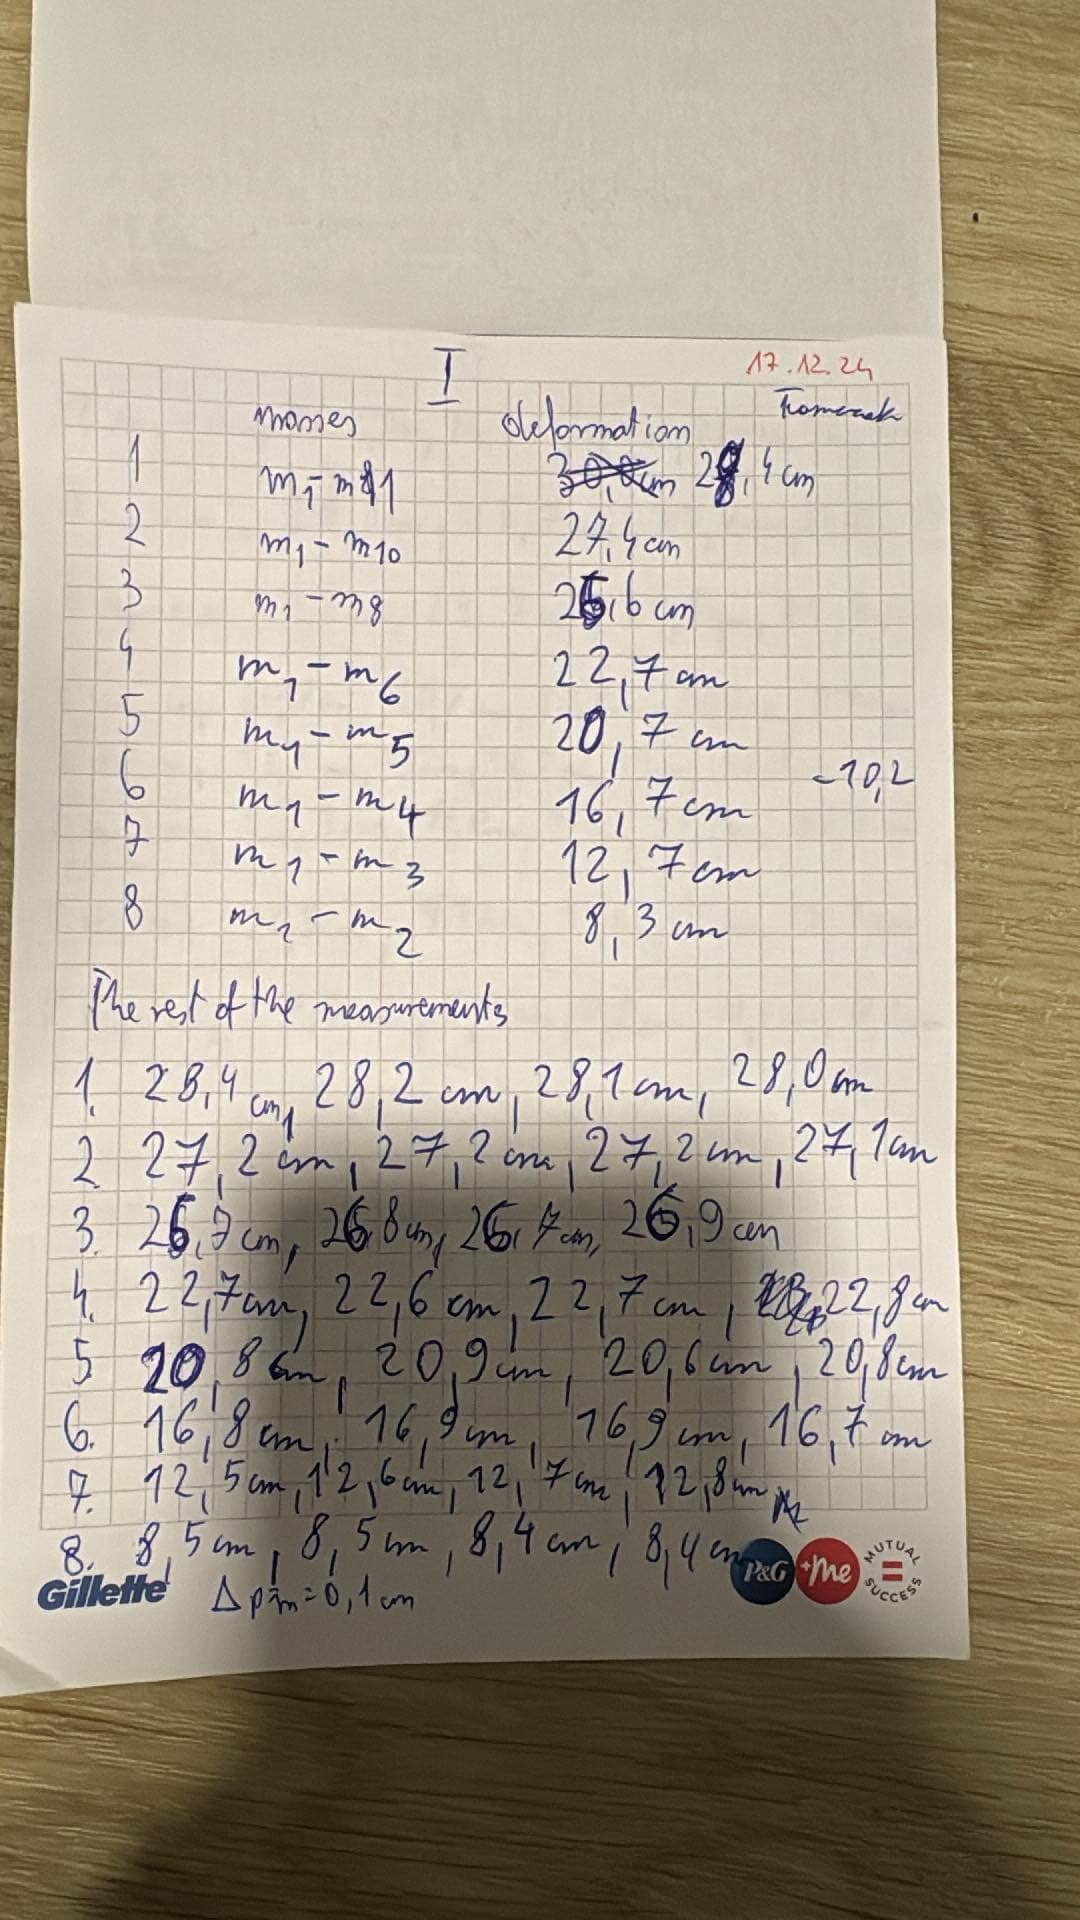 I
17.12.24
masses deformation
1 m1-m11 28,4cm
2 m1-m10 27,4cm
3 m1-m8 26,6cm
4 m1-m6 22,7cm
5 m1-m5 20,7cm
-10,2
6 m1-m4 16,7cm
7 m1-m3 12,7cm
8 m1-m2 8,3cm
The rest of the measurements
1. 28,4cm, 28,2cm, 28,1cm, 28,0cm
2. 27,2cm, 27,2cm, 27,2cm, 27,1cm
3. 26,7cm, 26,8cm, 26,7cm, 26,9cm
4. 22,7cm, 22,6cm, 22,7cm, 22,8cm
5 20,8cm, 20,9cm, 20,6cm, 20,8cm
6. 16,8cm, 16,9cm, 16,9cm, 16,7cm
7. 12,5cm, 12,6cm, 12,7cm, 12,8cm
8. 8,5cm, 8,5cm, 8,4cm, 8,4cm
Gillette P&G +Me MUTUAL SUCCESS
=0,1cm